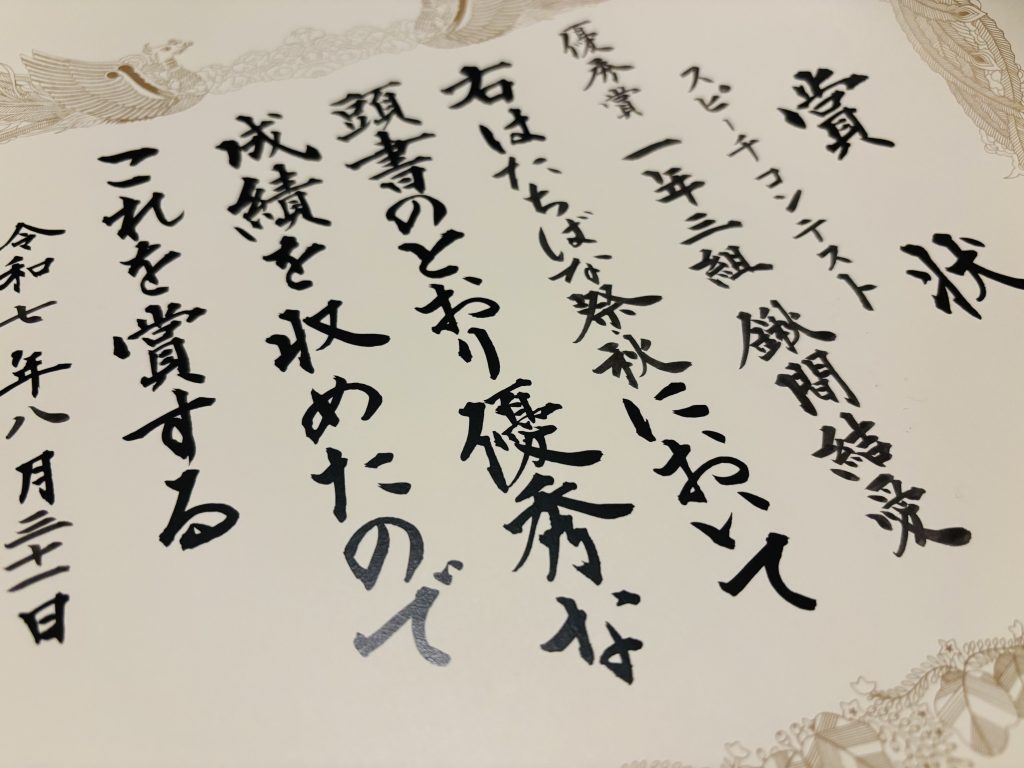 賞状
スピーチコンテスト
優秀賞
一年三組 鍬間結愛
右はたちばな祭秋において
頭書のとおり優秀な
成績を収めたので
これを賞する
令和七年八月三十一日